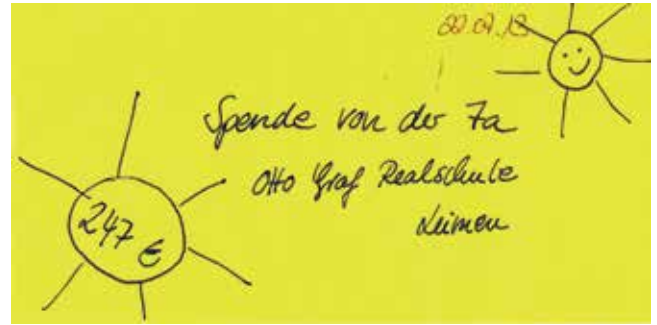 22.07.13
Spende von der 7a
Otto Graf Realschule
Leimen
247 €